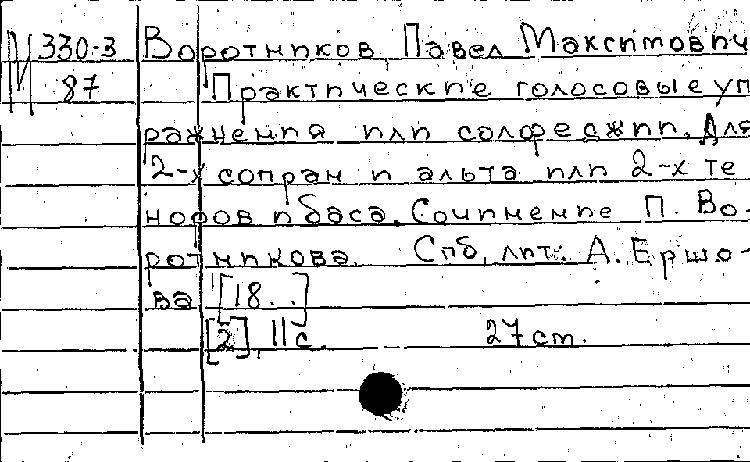 М 330-3 Воротников, Павел Максимович
87 Практические голосовые уп
ражнения или солфеджии. Для
2-х сопран и альта или 2-х те
норов и баса. Сочинение П. Во-
ротникова. Спб, лит. А. Ершо-
ва [18..]
[2], 11 с. 27 см.